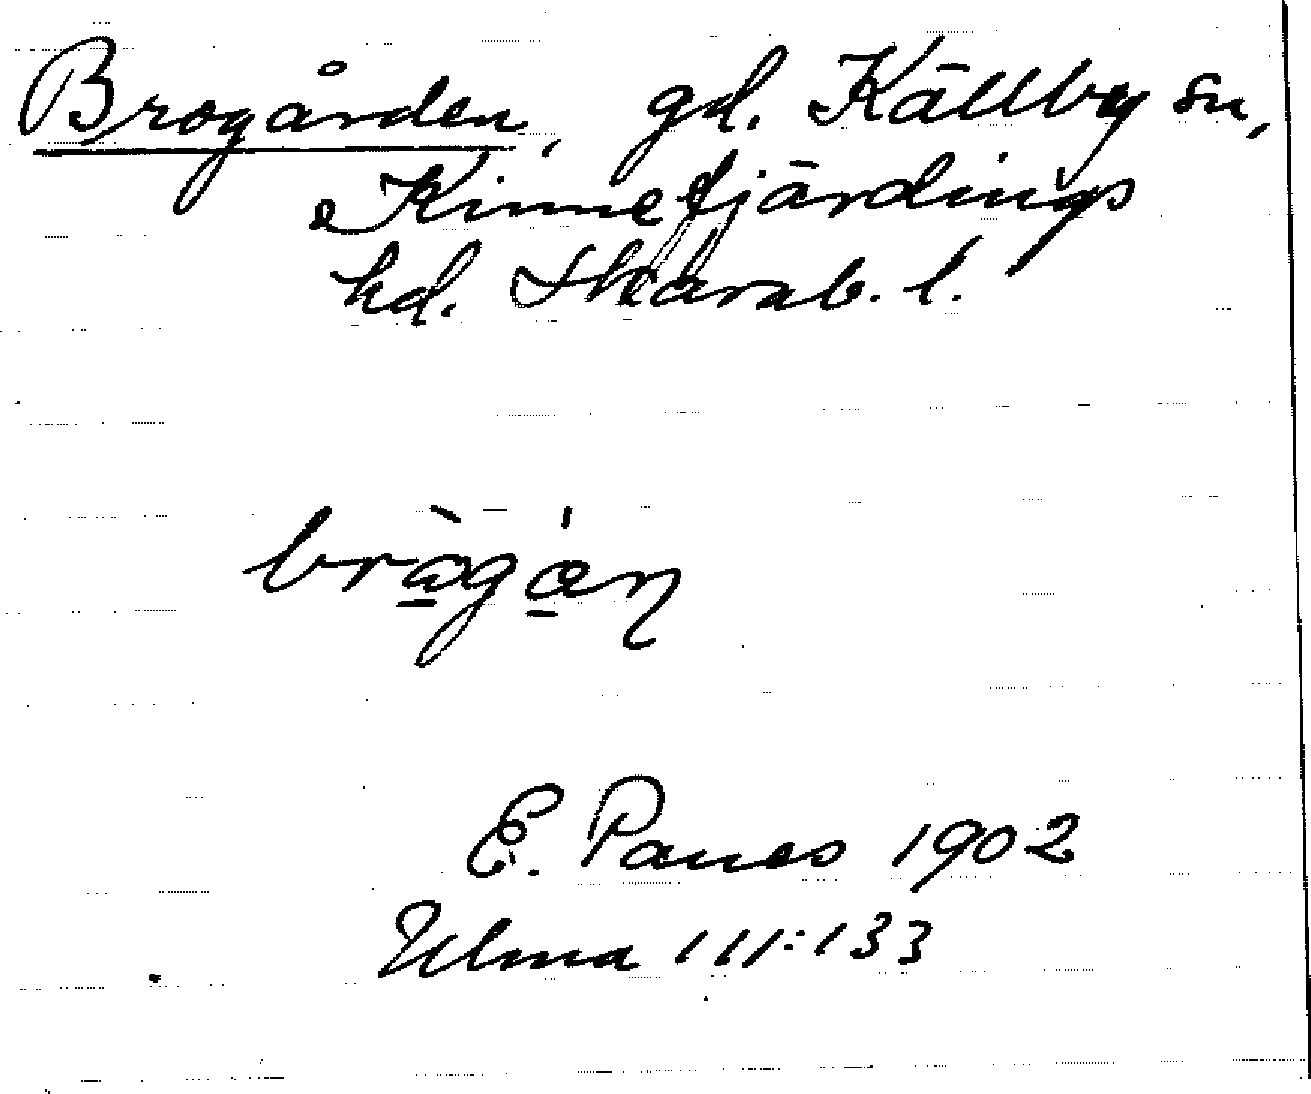 Brogården, gd. Källby sn,
Kinnefjärdings
hd. Skarab. l.
bràgá̱n
E. Panes 1902
Ulma 111:133